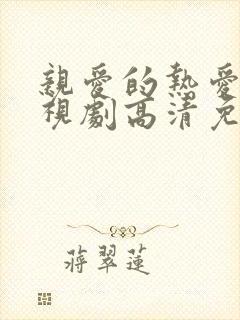 親愛的熱愛
視劇高清免
蔣翠蓮